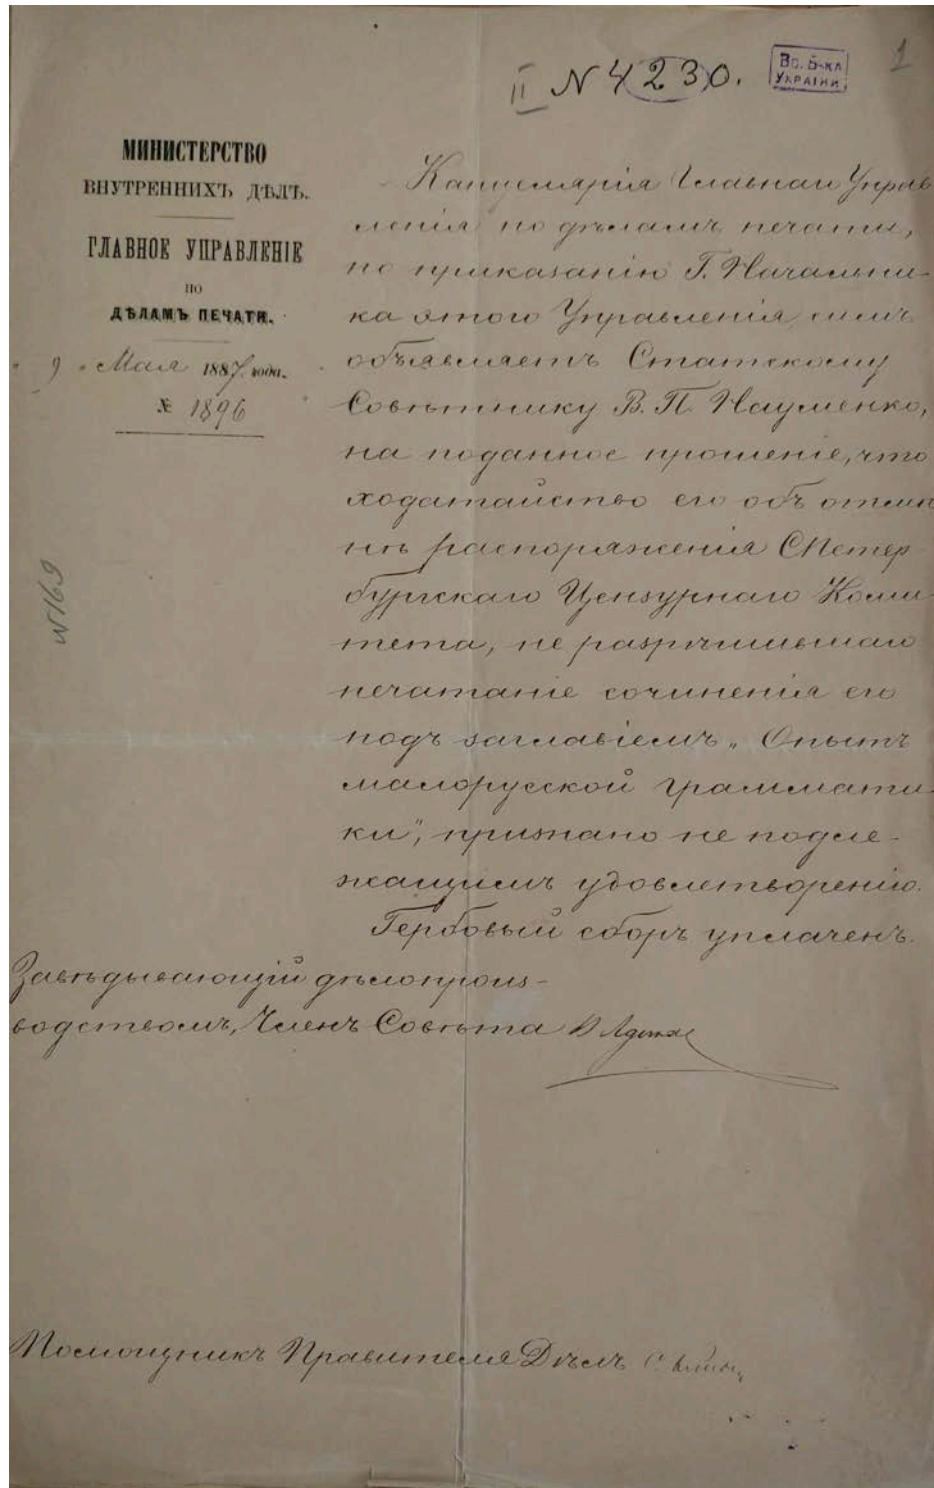 II N 4230.
Вс. Б-ка
України
1
МИНИСТЕРСТВО
ВНУТРЕННИХЪ ДѢЛЪ.
ГЛАВНОЕ УПРАВЛЕНІЕ
ПО
ДѢЛАМЪ ПЕЧАТИ.
" 9 " Мая 1887 года.
№ 1896
N 169
Канцелярія Главнаго Управ
ленія по дѣламъ печати,
по приказанію Г. Начальни-
ка этого Управленія, симъ
объявляетъ Статскому
Совѣтнику В. П. Науменко,
на поданное прошеніе, что
ходатайство его объ отмѣ
нѣ распоряженія СПетер
бургскаго Цензурнаго Коми
тета, не разрѣшившаго
печатаніе сочиненія его
подъ заглавіемъ „Опытъ
малорусской граммати-
ки", признано не подле-
жащимъ удовлетворенію.
Гербовый сборъ уплаченъ.
Завѣдывающій дѣлопроиз-
водствомъ, Членъ Совѣта
Помощникъ Правителя Дѣлъ